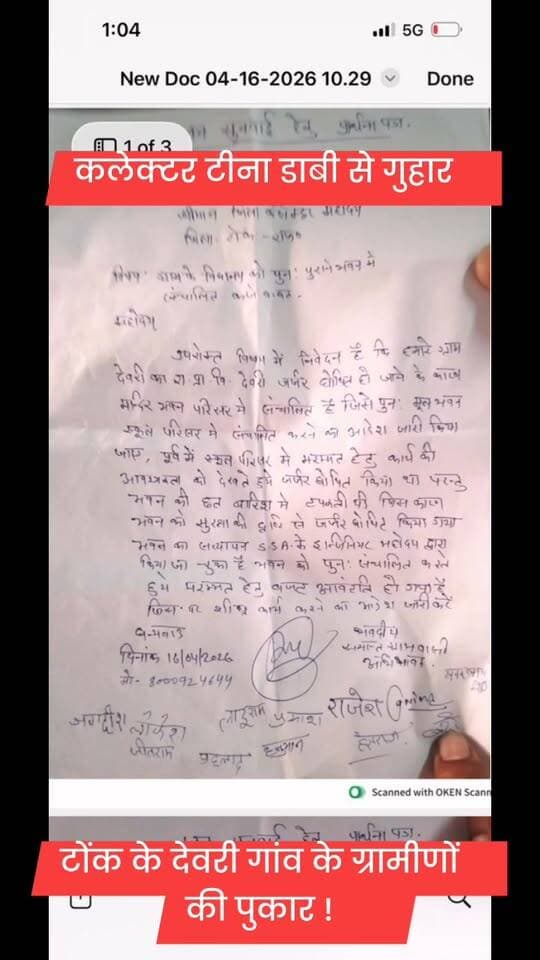 1:04 5G
New Doc 04-16-2026 10.29 Done
सुनवाई हेतु प्रार्थना पत्र.
1 of 3
कलेक्टर टीना डाबी से गुहार
श्रीमान जिला कलेक्टर महोदय
जिला- टोंक - राज०
विषय:- ग्राम के विद्यालय को पुन: पुराने भवन में
संचालित करने बाबत.
महोदय
उपरोक्त विषय में निवेदन है कि हमारे ग्राम
देवरी का रा. प्रा. वि. देवरी जर्जर घोषित हो जाने के कारण
मन्दिर भवन परिसर में संचालित है जिसे पुन: मूल भवन
स्कूल परिसर में संचालित करने का आदेश जारी किया
जाए, पूर्व में स्कूल परिसर में मरम्मत हेतु कार्य की
आवश्यकता को देखते हुये जर्जर घोषित किया था परन्तु
भवन की छत बारिश में टपकती थी जिस कारण
भवन को सुरक्षा की दृष्टि से जर्जर घोषित किया गया
भवन का सत्यापन S.S.A. के इन्जिनियर महोदय द्वारा
किया जा चुका है भवन को पुन: संचालित करते
हुये मरम्मत हेतु बजट आवंटित हो गया है
जिस पर शीघ्र कार्य करने का आदेश जारी करें
धन्यवाद भवदीय
दिनांक 16/04/2026 समस्त ग्रामवासी
मो.- 8000924644 अभिभावक
जगदीश लोकेश लादूराम प्रकाश राजेश
जीतराम प्रहलाद हनुमान
Scanned with OKEN Scann
हेतु प्रार्थना पत्र.
टोंक के देवरी गांव के ग्रामीणों
की पुकार !